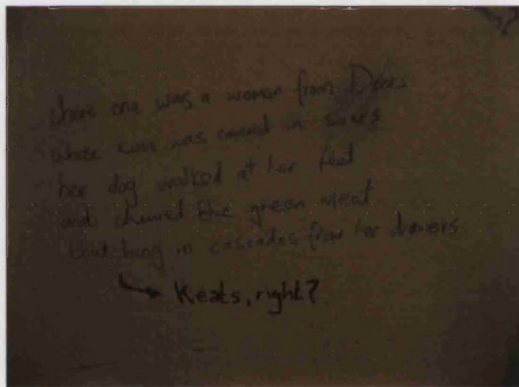 there one was a woman from Deers
whose was covered in sores
her dog walked at her feet
and chewed the green meat
that hung in cascades from her drawers
Keats, right?